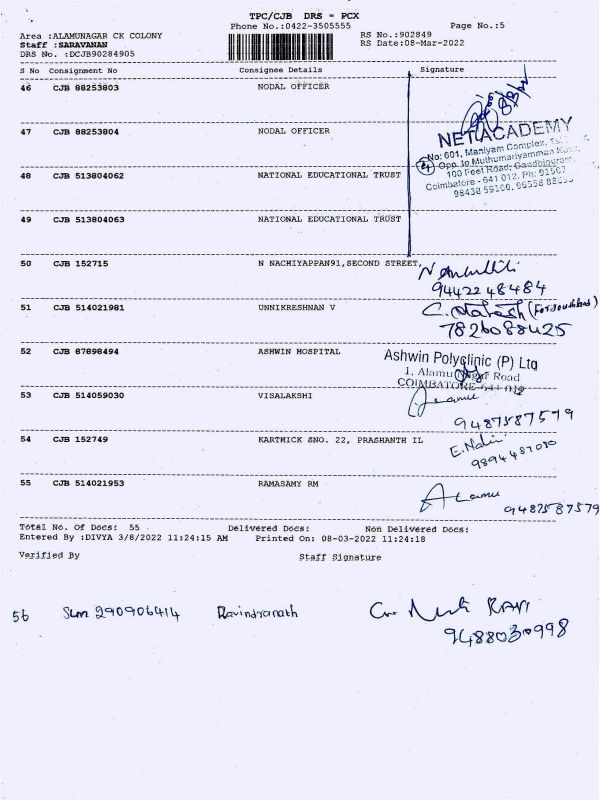 TPC/CJB DRS - PCX
Phone No.:0422-3505555 Page No.:5
Area :ALAMUNAGAR CK COLONY RS No.:902849
Staff :SARAVANAN RS Date:08-Mar-2022
DRS No. :DCJB90284905
S No Consignment No Consignee Details Signature
46 CJB 88253803 NODAL OFFICER
47 CJB 88253804 NODAL OFFICER
NET ACADEMY
No: 601, Maniyam Complex,
Opp. to Muthumariyamman
48 CJB 513804062 NATIONAL EDUCATIONAL TRUST
100 Feet Road, Gandhipuram,
Coimbatore - 641 012. Ph: 91507
98438 59100, 96558
49 CJB 513804063 NATIONAL EDUCATIONAL TRUST
50 CJB 152715 N NACHIYAPPAN91,SECOND STREET,
9442248484
51 CJB 514021981 UNNIKRESHNAN V
7826088425
52 CJB 87898494 ASHWIN HOSPITAL Ashwin Polyclinic (P) Ltd
1, Alamu Nagar Road
COIMBATORE - 641 012
53 CJB 514059030 VISALAKSHI
9487587579
54 CJB 152749 KARTHICK SNO. 22, PRASHANTH IL
9894487080
55 CJB 514021953 RAMASAMY RM
9487587579
Total No. Of Docs: 55 Delivered Docs: Non Delivered Docs:
Entered By :DIVYA 3/8/2022 11:24:15 AM Printed On: 08-03-2022 11:24:18
Verified By Staff Signature
56 SLM 290906414 Ravindranath RAVI
9488030998